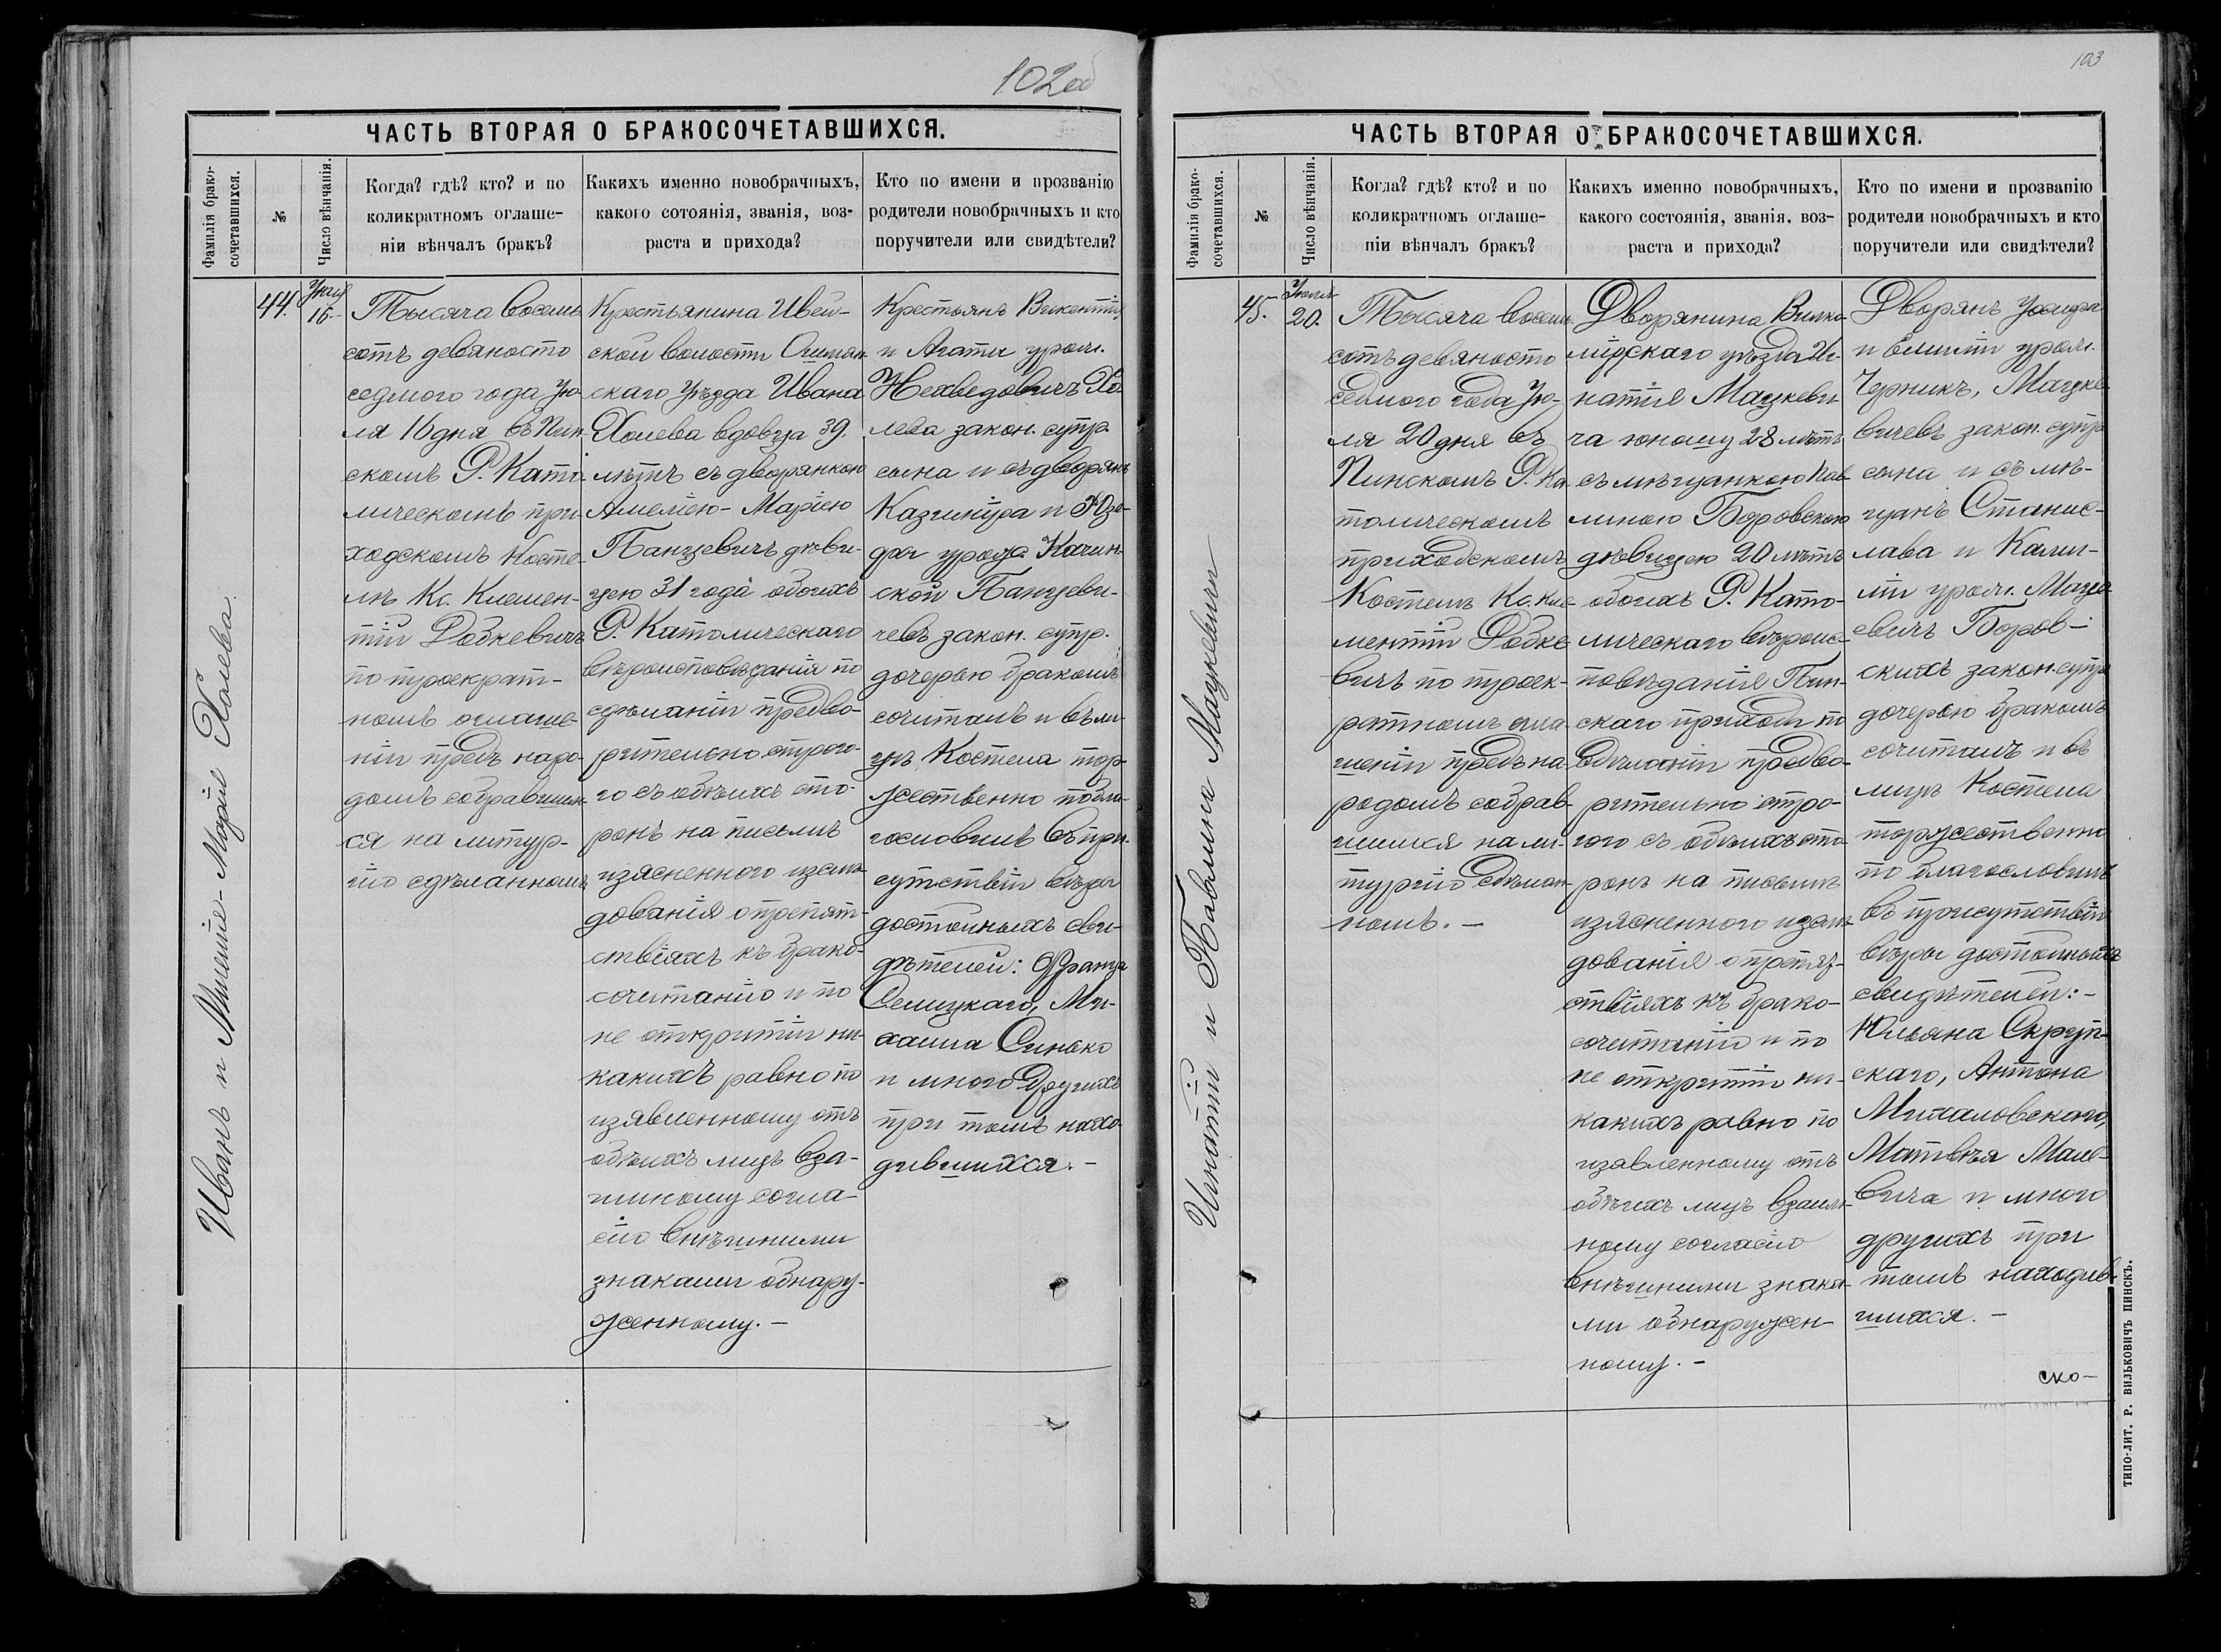 102 об
ЧАСТЬ ВТОРАЯ О БРАКОСОЧЕТАВШИХСЯ.
Фамилія брако-
сочетавшихся.
№
Число вѣнчанія.
Когда? гдѣ? кто? и по
коликратномъ оглаше-
ніи вѣнчалъ бракъ?
Какихъ именно новобрачныхъ,
какого сотоянія, званія, воз-
раста и прихода?
Кто по имени и прозванію
родители новобрачныхъ и кто
поручители или свидѣтели?
Иванъ и Амелія-Марія Холева.
44.
16.
Тысяча восемь
сотъ девяносто
седмого года Ію-
ля 16 дня въ Пин-
скомъ Р. Като-
лическомъ при-
ходскомъ Косте-
лѣ Кс. Клемен-
тій Робкевичъ
по троекрат-
номъ оглаше-
ніи предъ наро-
домъ собравшим-
ся на литур-
гію сдѣланномъ
Крестьянина Ивей-
ской волости Ошмян-
скаго уѣзда Ивана
Холева вдовца 39.
лѣтъ съ дворянкою
Амеліею-Маріею
Панцевичъ дѣви-
цею 31 года обоихъ
Р. Католическаго
вѣроисповѣданія по
сдѣланіи предво-
рительно строго-
го съ обѣихъ сто-
ронъ на письмѣ
изясненного изслѣ-
дованія о препят-
ствіяхъ къ брако-
сочетанію и по
не откритіи ни-
какихъ равно по
изявленному отъ
обѣихъ лицъ вза-
имному согла-
сію внѣшними
знаками обнару-
женному. -
Крестьянъ Викентія
и Агаты урож.
Нехведовичъ Хо-
лева закон. супр.
сына и съ дворянъ
Казимира и Юзе-
фы урожд. Качин-
ской Панцеви-
чевъ закон. супр.
дочерью бракомъ
сочиталъ и въ ли-
цѣ Костела тор-
жественно побла-
гословилъ въ при-
сутствіи вѣры
достойныхъ сви-
дѣтелей: Франца
Селицкаго, Ми-
хаила Синько
и много другихъ
при томъ нахо-
дившихся. -
103
ЧАСТЬ ВТОРАЯ О БРАКОСОЧЕТАВШИХСЯ.
Фамилія брако-
сочетавшихся.
№
Число вѣнчанія.
Когда? гдѣ? кто? и по
коликратномъ оглаше-
ніи вѣнчалъ бракъ?
Какихъ именно новобрачныхъ,
какого состоянія, званія, воз-
раста и прихода?
Кто по имени и прозванію
родители новобрачныхъ и кто
поручители или свидѣтели?
Игнатій и Павлина Мацкевичи
45.
Іюля
20.
Тысяча восемь
сотъ девяносто
седмого года Ію-
ля 20 дня въ
Пинскомъ Р. Ка-
толическомъ
приходскомъ
Костелѣ Кс. Кле-
ментій Робке-
вичъ по троек-
ратномъ огла-
шеніи предъ на-
родомъ собрав-
шимся на ли-
тургію сдѣлан-
номъ. -
Дворянина Вилко-
мірскаго уѣзда Иг-
натія Мацкеви-
ча юношу 28 лѣтъ
съ мѣщанкою Пав-
линою Боровскою
дѣвицею 20 лѣтъ
обоихъ Р. Като-
лическаго вѣроис-
повѣданія Пин-
скаго прихода по
сдѣланіи предво-
рительно стро-
гого съ обѣихъ сто-
ронъ на письмѣ
изясненного изслѣ-
дованія о препят-
ствіяхъ къ брако-
сочетанію и по
не откритіи ни-
какихъ равно по
изявленному отъ
обѣихъ лицъ взаим-
ному согласію
внѣшними знака-
ми обнаружен-
ному. -
Дворянъ Іосифа
и Емиліи урож.
Черникъ, Мацке-
вичевъ закон. супр.
сына и съ мѣ-
щанъ Станис-
лава и Ками-
ліи урож.
Боров-
скихъ закон. супр.
дочерью бракомъ
сочиталъ и въ
лицѣ Костела
торжественно
по благословилъ
въ присутствіи
вѣры достойныхъ
свидѣтелей: -
Юльяна Скруп-
скаго, Антона
Михаловскаго,
Матвѣя Мале-
вича и много
другихъ при
томъ находив-
шихся. -
ско-
ТИПО-ЛИТ. Р. ВИЛЬКОВИЧЪ ПИНСКЪ.